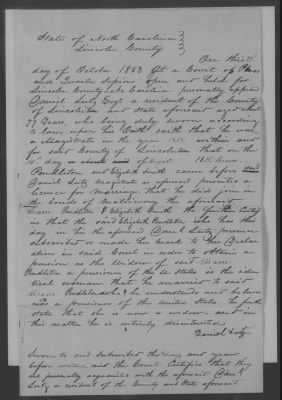 State of North Carolina
Lincoln County
On this
day of October 1853 at a Court of Pleas
and Quarter Sessions open and held for
Lincoln County N Carolina personally appeared
Daniel Lutz Esqr a resident of the County
of Lincolnton and State aforesaid aged about
77 years, who being duly sworn according
to law, upon his Oath saith that he was
a Magistrate in the year 1815 within and
for said County of Lincolnton that on the
day of August 1815
Pendleton and Elizabeth Smith came before said
Daniel Lutz magistrate as aforesaid presented a
licence for marriage that he did join in
the bonds of matrimony the aforesaid
Pendleton & Elizabeth Smith. He further Certify
is that the said Elizabeth Pendleton who has this
day in his the aforesaid Danl Lutz presence
subscribed or made her mark to the Declar
ation in said Court in order to obtain a
pension as the Widow of said
Pendleton a pensioner of the U. States is the iden
tical woman that he married to said
Pendleton who he understands and
was a pensioner of the United States he further
states that she is now a widow and in
this matter he is intirely disinterested
Daniel Lutz
Sworn to and Subscribed the day and year
before written and the Court Certifies that they
are personally acquainted with the aforesaid Danl
Lutz a resident of the County and State aforesaid